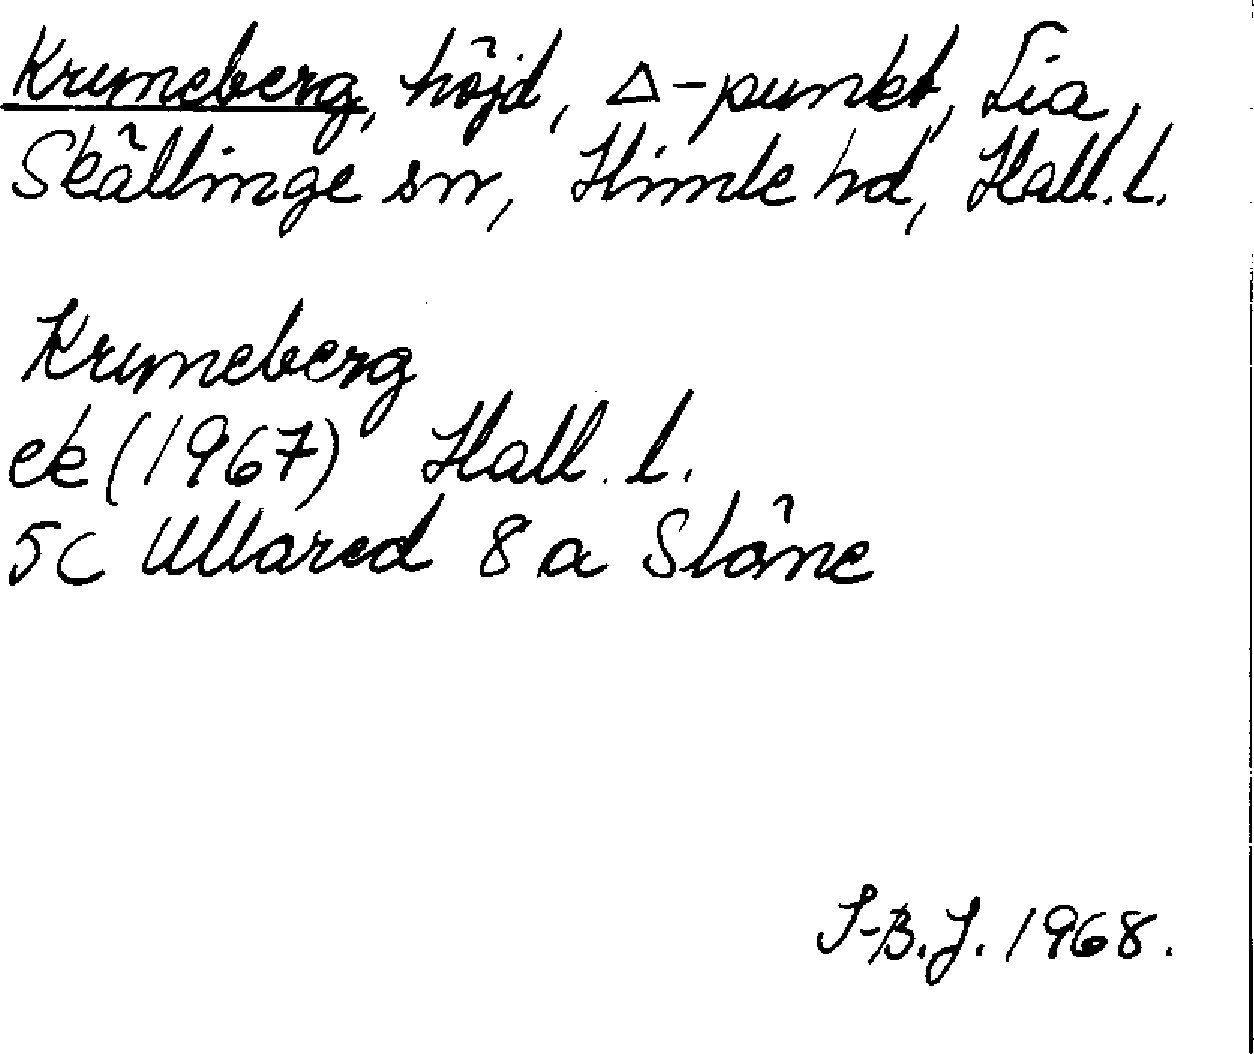 Krumeberg, höjd, △-punkt, Lia,
Skällinge sn, Himle hd, Hall. l.
Krumeberg
ek (1967) Hall. l.
5C Ullared 8 a Slöne
S-B. J. 1968.